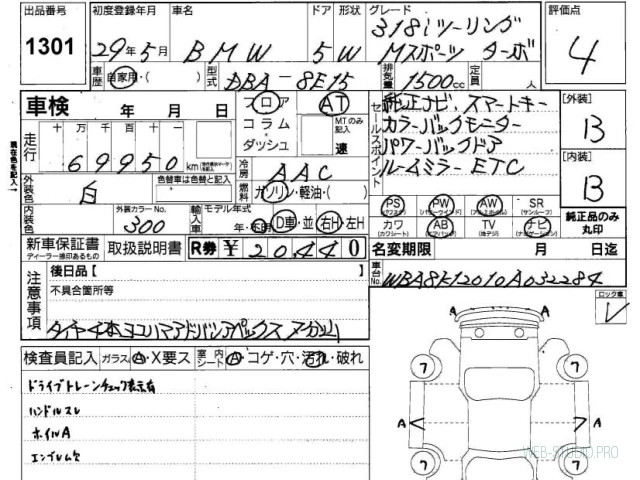 出品番号 初度登録年月 車名 ドア 形状 グレード 評価点
1301 29年5月 BMW 5 W 318iツーリング Mスポーツ ターボ 4
車歴 自家用・( ) 型式 DBA-8E15 排気量 1500cc 定員 人
車検 年 月 日 フロア コラム・ダッシュ AT MTのみ記入 速
セールスポイント 純正ナビ、スマートキー
カラーバックモニター
パワーバックドア
ルームミラー ETC
[外装] B
[内装] B
現在色を記入→
走行 十 万 千 百 十 一
69950 km
冷房 AAC
外装色 白 色替車は色替と記入 燃料 ガソリン・軽油・( )
内装色 外装カラーNo. 300 輸入車 モデル年式 年・不明 D車・並 右H・左H
PS (パワステ) PW (パワーウインド) AW (アルミホイル) SR (サンルーフ)
カワ (カワシート) AB (エアバック) TV (地デジ) ナビ (ナビゲーション)
純正品のみ丸印
新車保証書 ディーラー捺印あるもの 取扱説明書 R券 ¥20440
名変期限 月 日迄
車台No. WBA8K12010A032284
注意事項 後日品[
不具合箇所等
タイヤ4本ヨコハマアドバンアペックス
ロック車
検査員記入 ガラス A・X要ス 室内シート A・コゲ・穴・汚れ・破れ
ドライブトレーンチェック表示有
ハンドルスレ
ホイルA
エンブレム欠
A A
7 7
A A
7 7
WEB-STUDIO.PRO